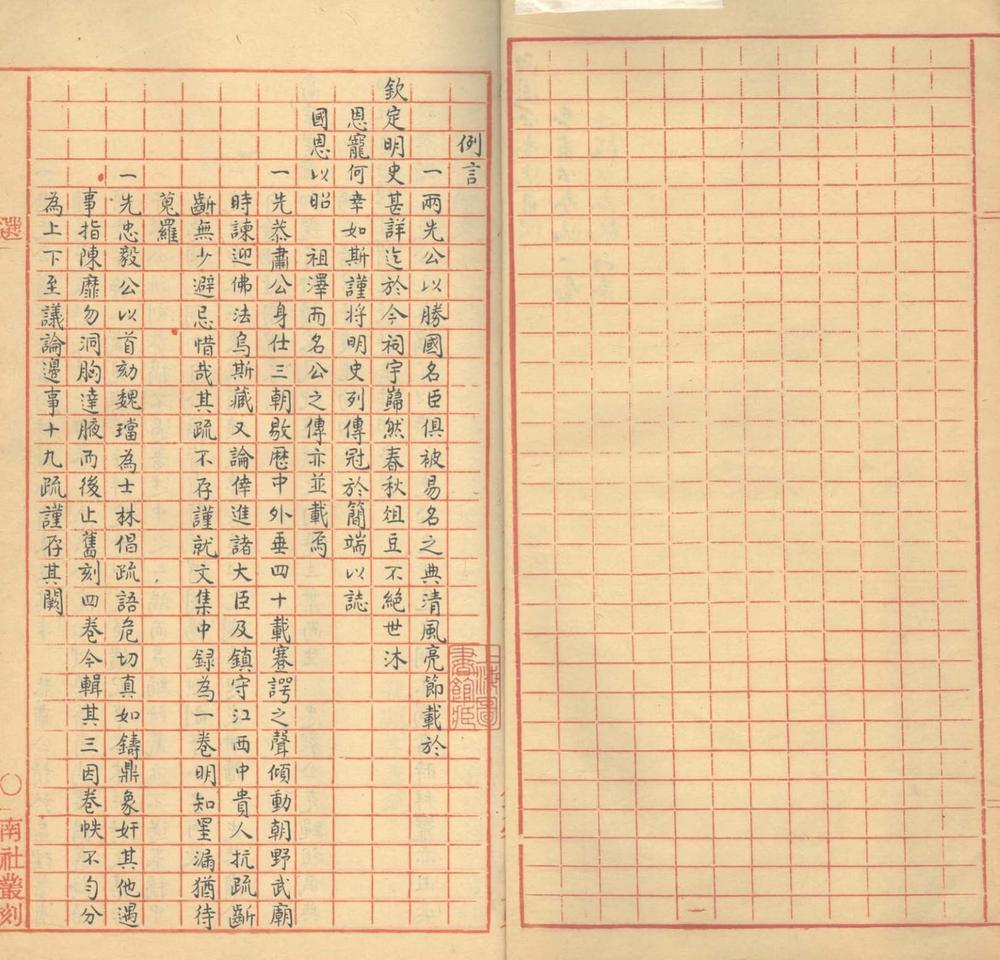 例言
一兩先公以勝國名臣俱被易名之典清風亮節載於
欽定明史甚詳迄於今祠宇巋然春秋俎豆不絕世沐
恩寵何幸如斯謹將明史列傳冠於簡端以誌
國恩以昭 祖澤而名公之傳亦並載焉
一先恭肅公身仕三朝敭歷中外垂四十載蹇諤之聲傾動朝野武廟
時諫迎佛法烏斯藏又論倖進諸大臣及鎮守江西中貴人抗疏斷
斷無少避忌惜哉其疏不存謹就文集中録為一卷明知罣漏猶待
蒐羅
一先忠毅公以首劾魏璫為士林倡疏語危切真如鑄鼎象奸其他遇
事指陳靡勿洞胸達腋而後止舊刻四卷今輯其三因卷帙不勻分
為上下至議論邊事十九疏謹存其闕
選
南社叢刻
上海圖書館藏